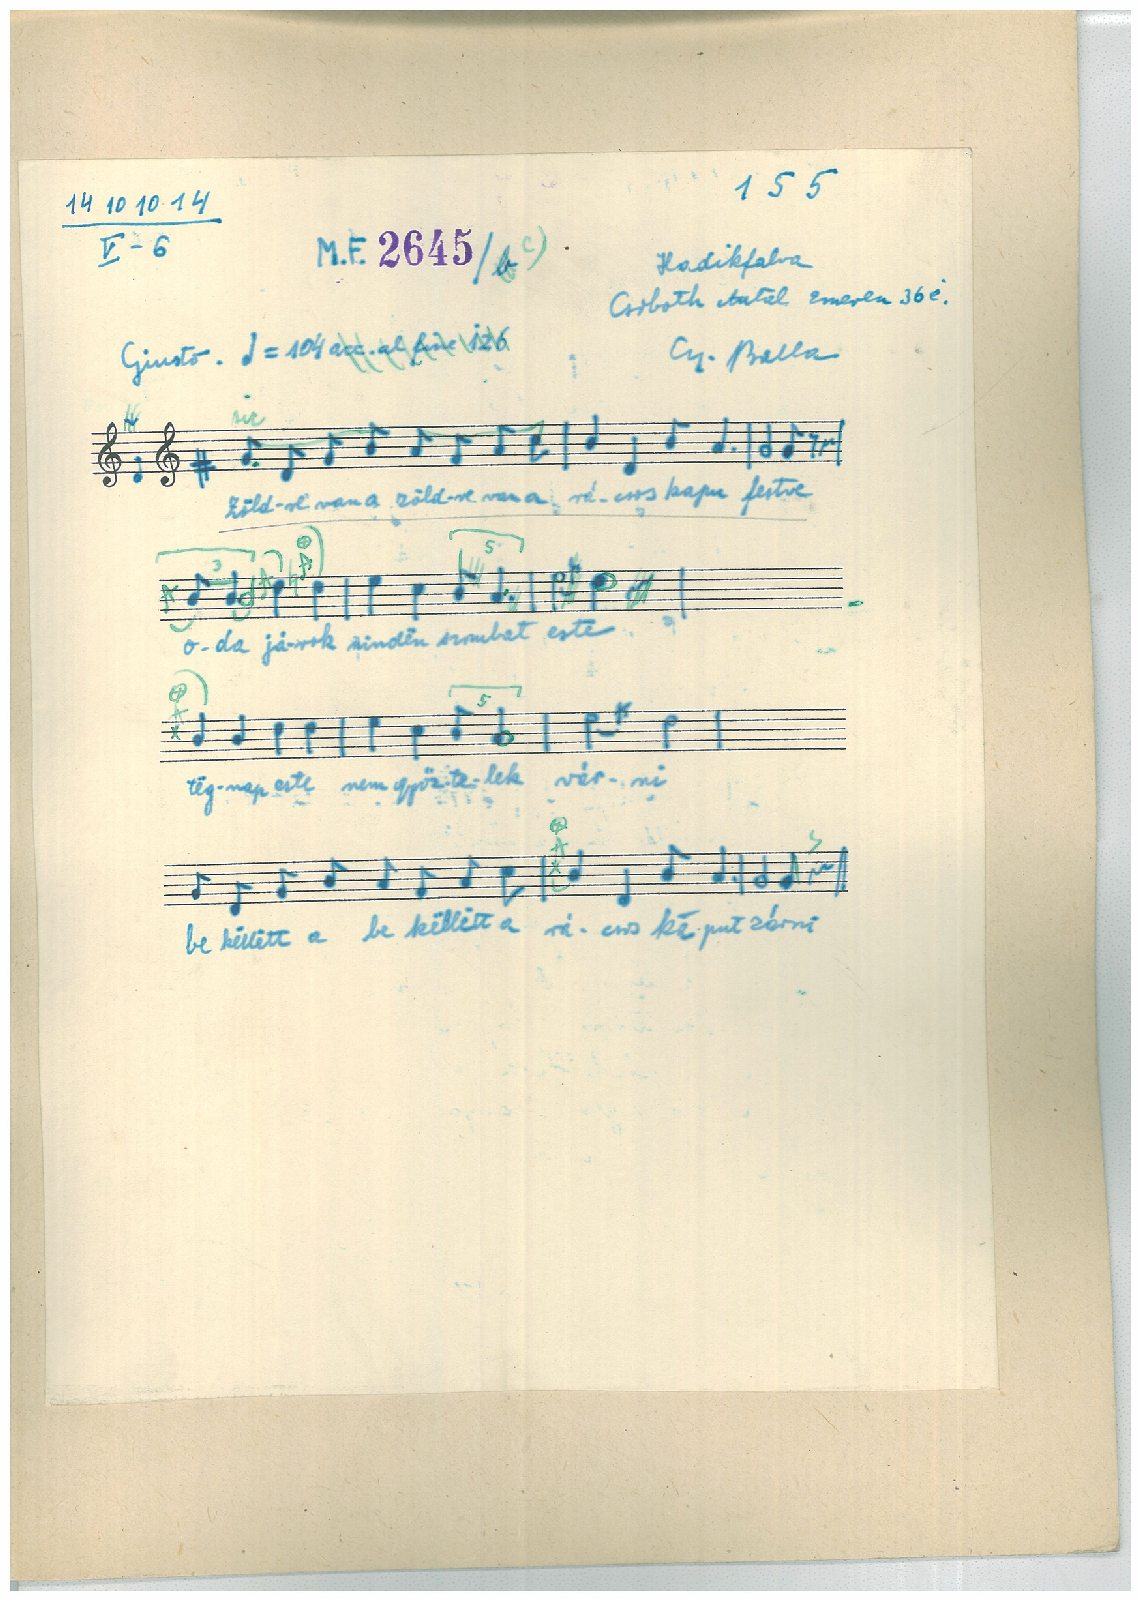 14 10 10. 14
V - 6
155
M.F. 2645/b c)
Hadikfalva
Csiboth Antal 36 é.
Giusto. = 104 acc. al fine 126
Gy. Balla
sic
Zöld-re van a zöld-re van a rá-csos kapu festve
3
5
o-da já-rok minden szombat este
5
tëg-nap este nem győz-te-lek vár-ni
be këllëtt a be këllëtt a rá-csos ka-put zárni